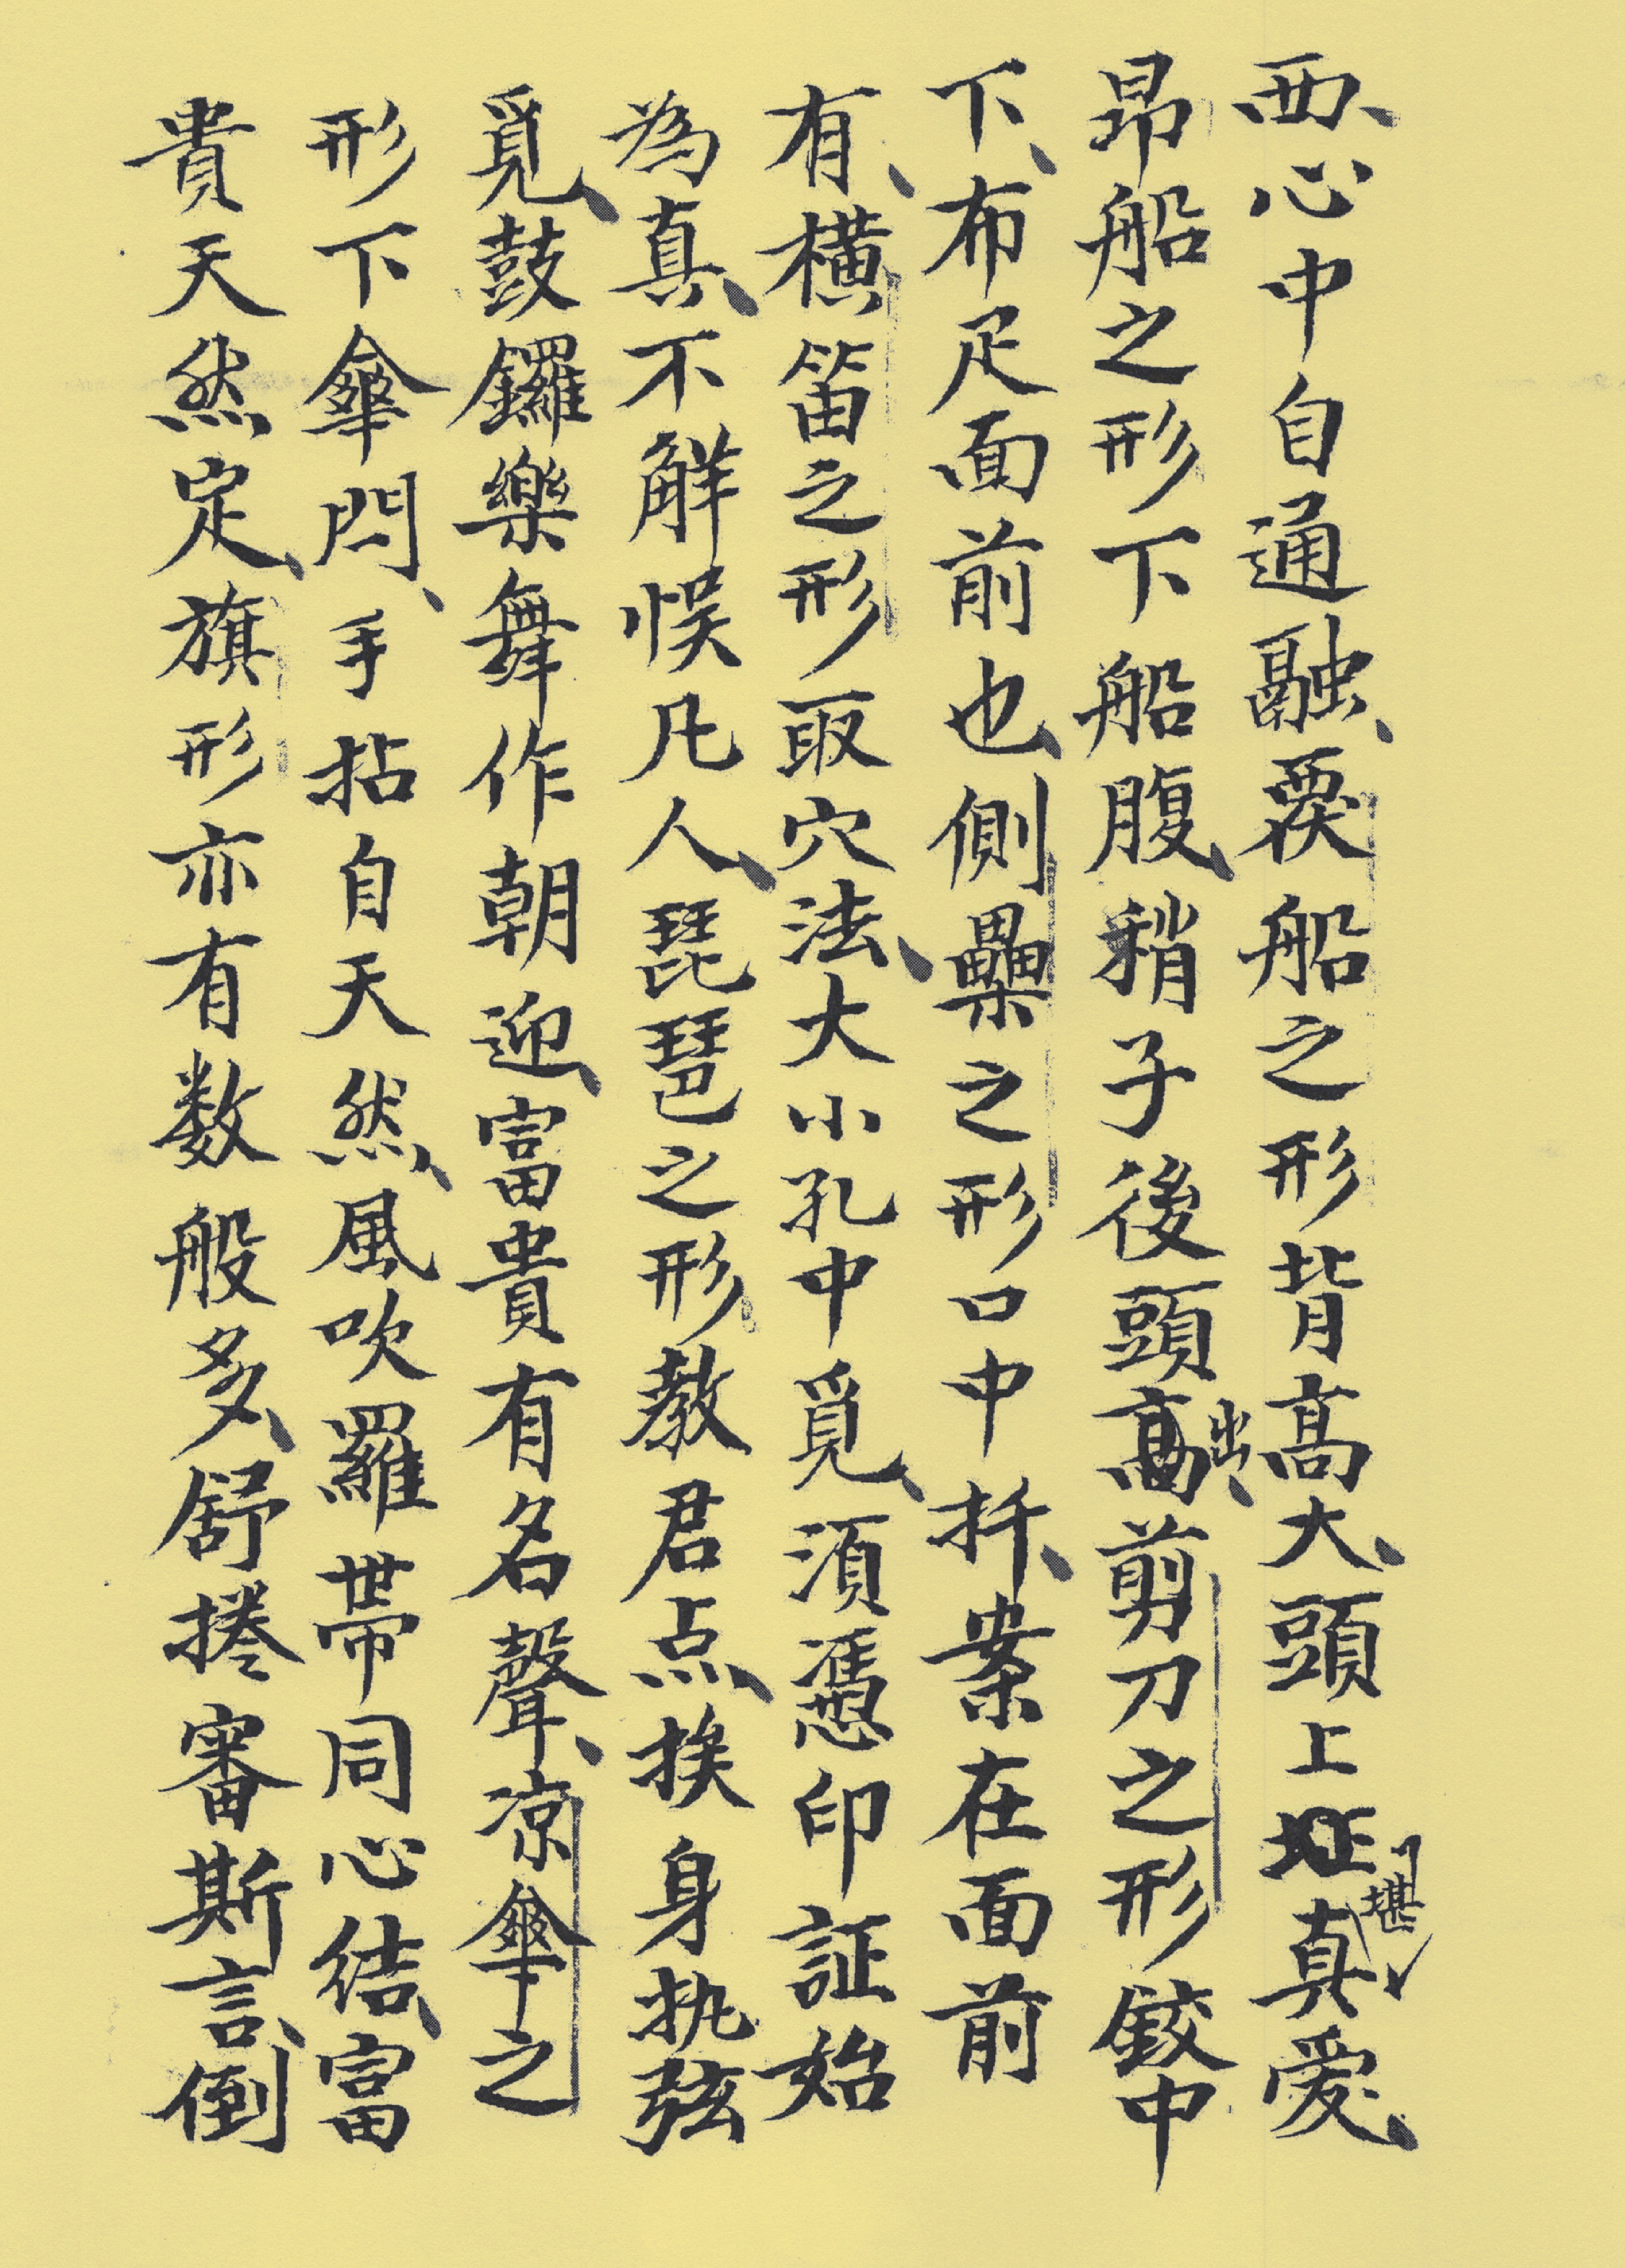 西、心中自通融、覆船之形背高大、頭上堪真愛、
昂船之形下船腹、稍子後頭高出、剪刀之形鉸中
下、布疋面前也、側壘之形口中扦、案在面前
有、橫笛之形取穴法、大小孔中覓、須憑印証始
為真、不觧悮凡人、琵琶之形教君点、挨身执弦
覓、鼓鑼樂舞作朝迎、富貴有名聲、凉傘之
形下傘閂、手拈自天然、風吹羅帶同心結、富
貴天然定、旗形亦有数般多、舒捲審斯言、倒